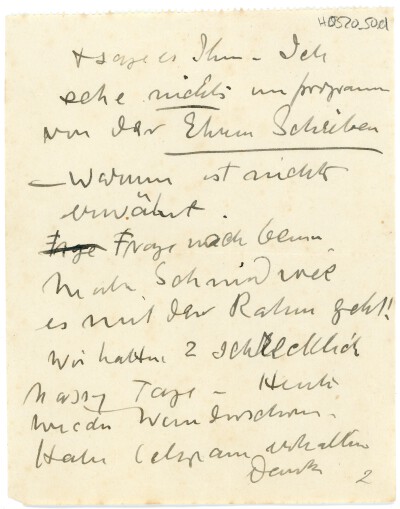 HQ520_50d
+ sage es Ihm – Ich
sehe nichts im program
von der Ehren Scheiben
– Warum ist nichts
erwähnt.
Frage nach beim
Schmid wie
es mit der Rahm geht!
Wir hatten 2 schrecklich
nasse Tage – Heute
wieder Wunderschön.
Habe Telegram erhalten
Dank
2